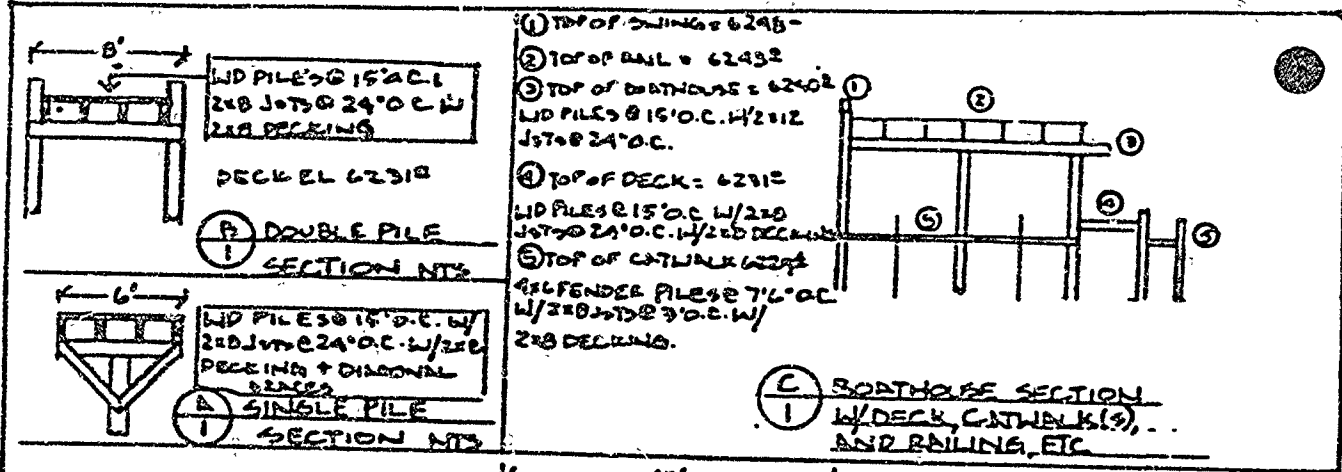 8'
WD PILES @ 15' O.C.
2x8 JSTS @ 24" O.C. W
2x8 DECKING
DECK EL 6231º
B
1
DOUBLE PILE
SECTION NTS
6'
WD PILES @ 15' O.C. W/
2x8 JSTS @ 24" O.C. W/2x8
DECKING + DIAGONAL
BRACES
A
1
SINGLE PILE
SECTION NTS
① TOP OF SWING = 6248-
② TOP OF RAIL = 6243º
③ TOP OF BOATHOUSE = 6240º
WD PILES @ 15' O.C. W/2x12
JSTS @ 24" O.C.
④ TOP OF DECK = 6231º
WD PILES @ 15' O.C W/2x8
JSTS @ 24" O.C. W/2x8 DECKING
⑤ TOP OF CATWALK
4x6 FENDER PILES @ 7'6" OC
W/2x8 JSTS @ 3' O.C. W/
2x8 DECKING.
①
②
③
④
⑤
⑤
C
1
BOATHOUSE SECTION
W/DECK, CATWALK(S),
AND RAILING, ETC